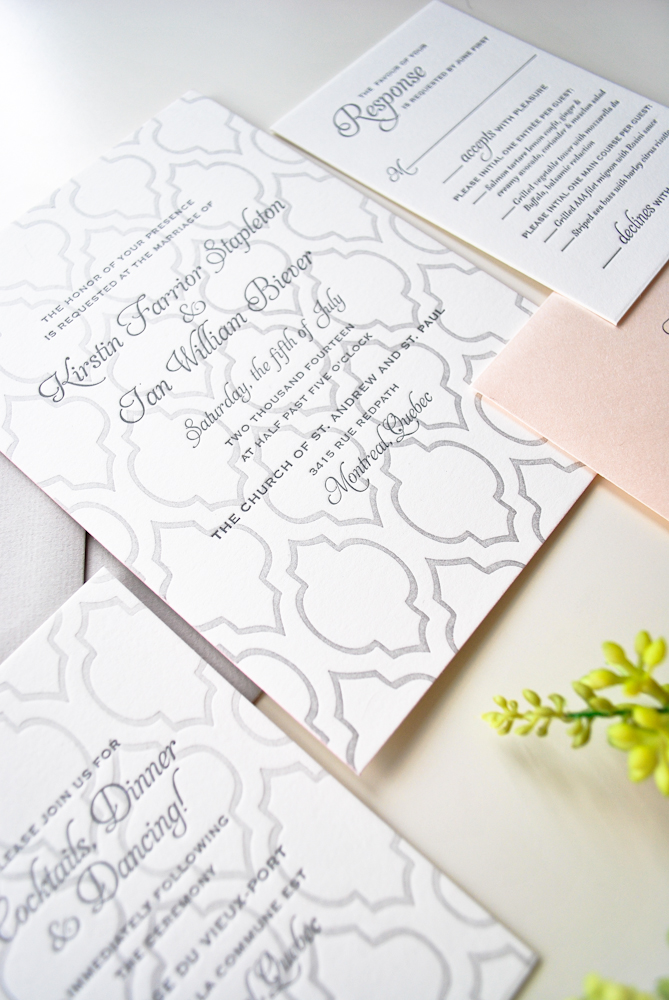 THE HONOR OF YOUR PRESENCE
IS REQUESTED AT THE MARRIAGE OF
Kirstin Farrior Stapleton
&
Ian William Biever
Saturday, the fifth of July
TWO THOUSAND FOURTEEN
AT HALF PAST FIVE O'CLOCK
THE CHURCH OF ST. ANDREW AND ST. PAUL
3415 RUE REDPATH
Montreal, Quebec
THE FAVOUR OF YOUR
Response
IS REQUESTED BY JUNE FIRST
M
accepts WITH PLEASURE
PLEASE INTIAL ONE ENTRÉE PER GUEST:
Salmon tartare lemon confit, ginger &
creamy avocado, coriander & meselun salad
Grilled vegetable tower with mozzarella du
Buffala, balsamic reduction
PLEASE INTIAL ONE MAIN COURSE PER GUEST:
Grilled AAA filet mignon with Bovini sauce
Striped sea bass with barley citrus
declines WITH
PLEASE JOIN US FOR
Cocktails, Dinner
& Dancing!
IMMEDIATELY FOLLOWING
THE CEREMONY
SE DU VIEUX-PORT
LA COMMUNE EST
Quebec